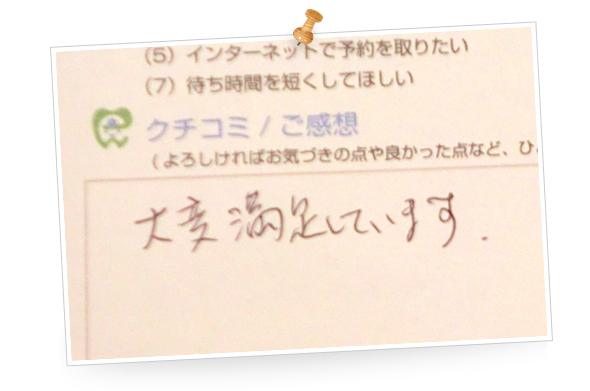 (5) インターネットで予約を取りたい
(7) 待ち時間を短くしてほしい
クチコミ / ご感想
(よろしければお気づきの点や良かった点など、ひ
大変満足しています.